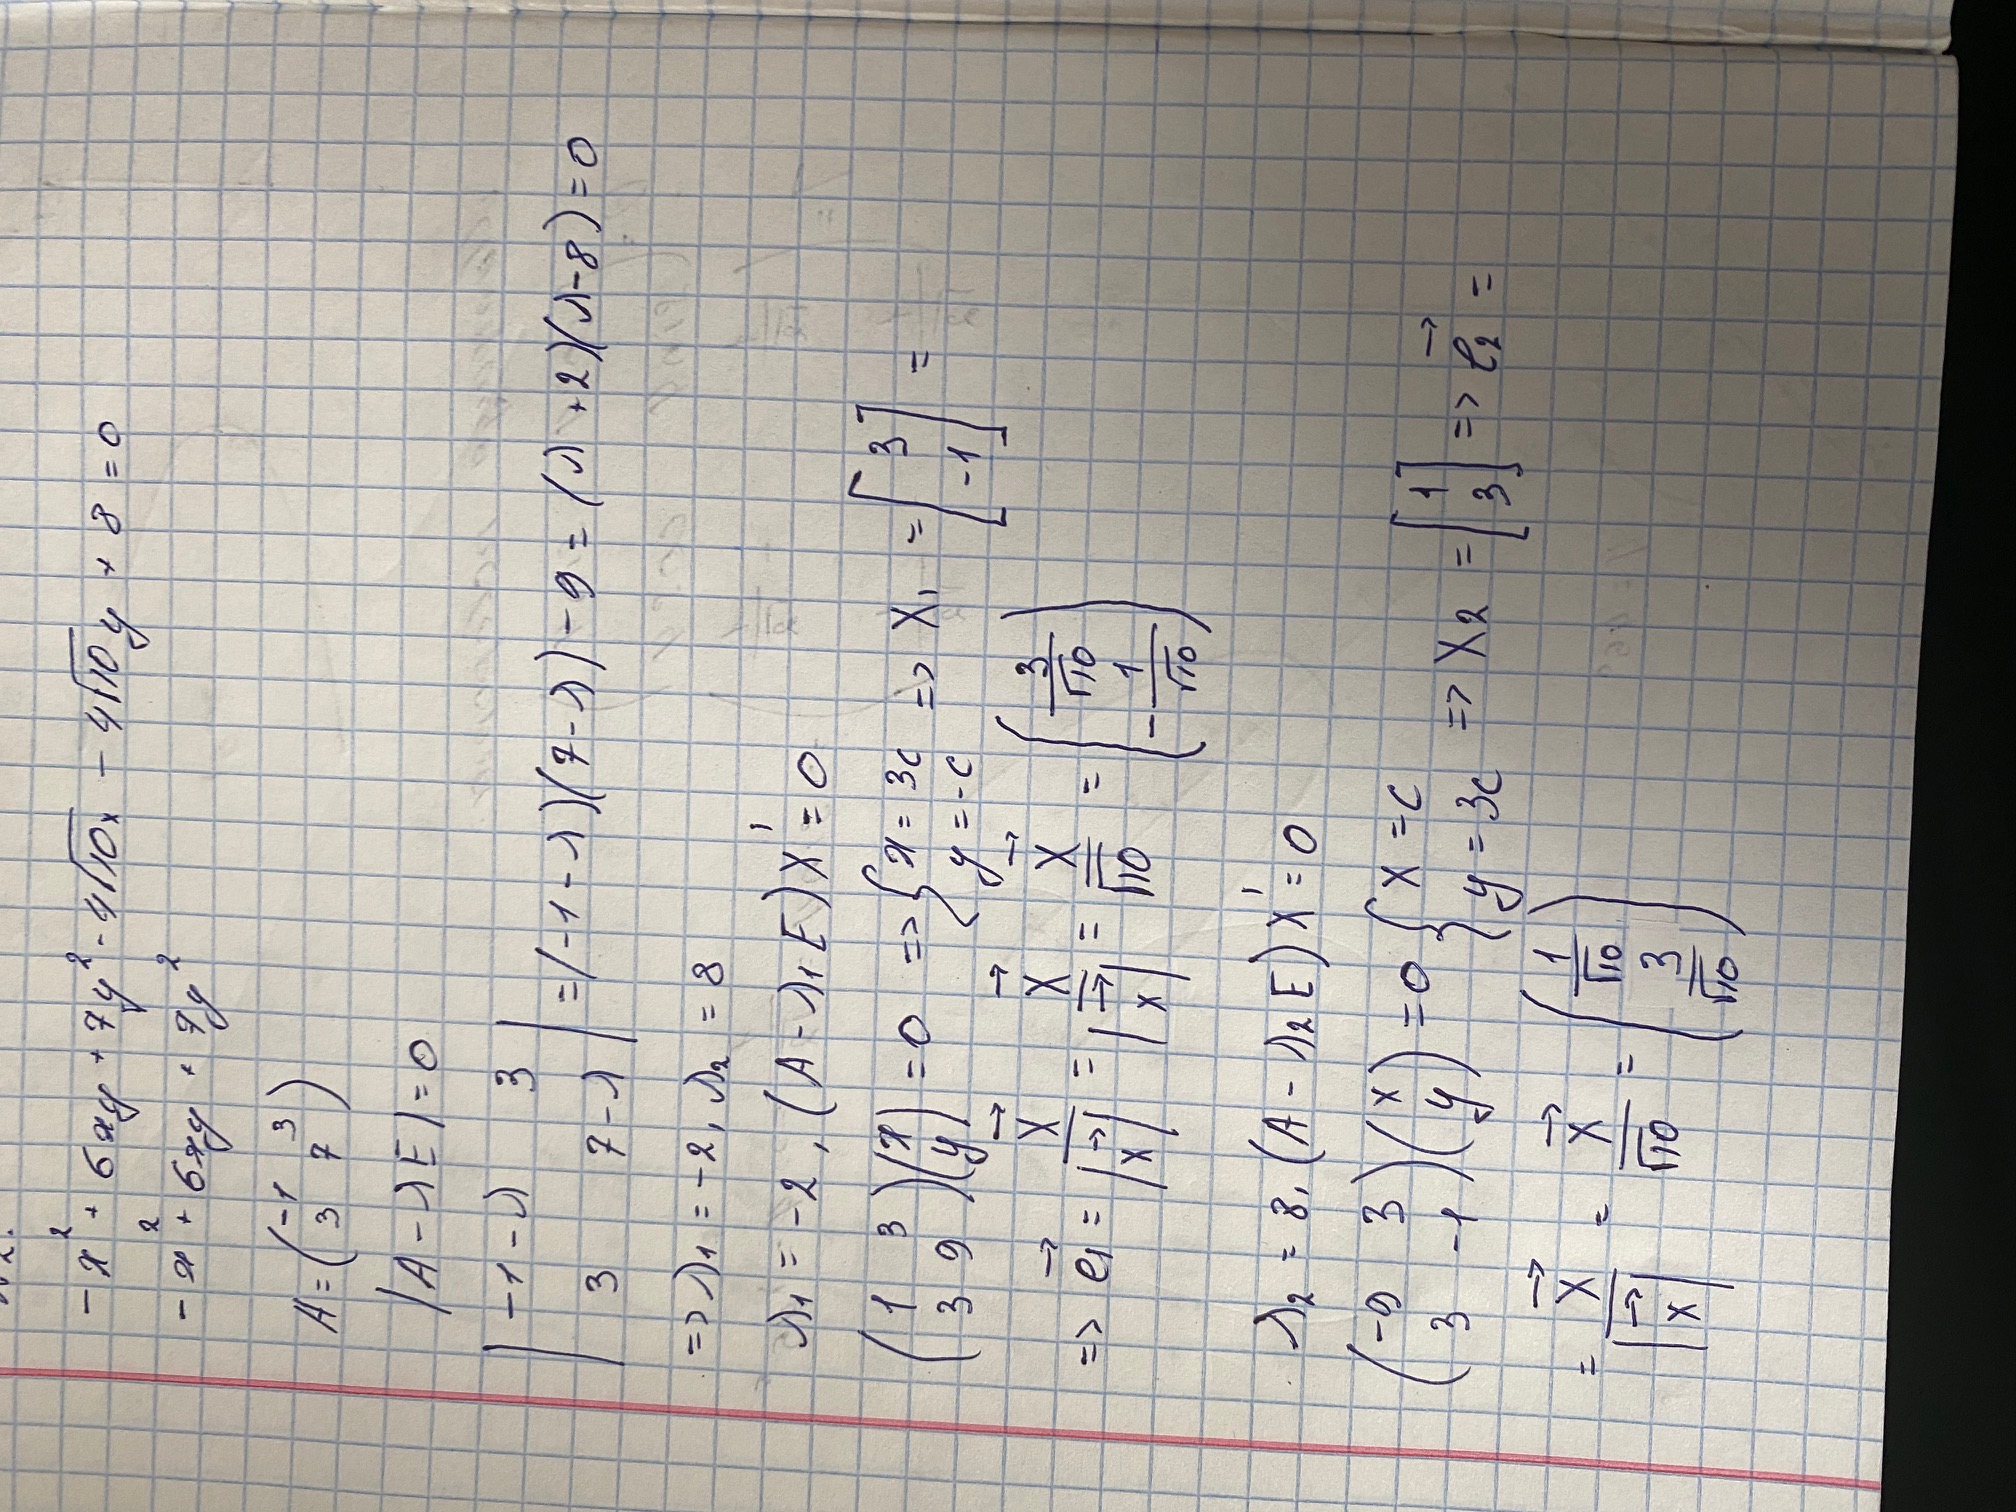 -x² + 6xy + 7y² - 4√10x - 4√10y + 8 = 0
-x² + 6xy + 7y²
A = (-1 3; 3 7)
|A - λE| = 0
|-1-λ 3; 3 7-λ| = (-1-λ)(7-λ) - 9 = (λ+2)(λ-8) = 0
=> λ₁ = -2, λ₂ = 8
λ₁ = -2, (A - λ₁E)X' = 0
(1 3; 3 9)(x; y) = 0 => {x = 3c; y = -c => X₁ = [3; -1] =
=> e₁→ = x→/|x→| = x→/|x→| = x→/√10 = (3/√10; -1/√10)
λ₂ = 8, (A - λ₂E)X' = 0
(-9 3; 3 -1)(x; y) = 0 {x = c; y = 3c => X₂ = [1; 3] => e₂→ =
= x→/|x→| = x→/√10 = (1/√10; 3/√10)